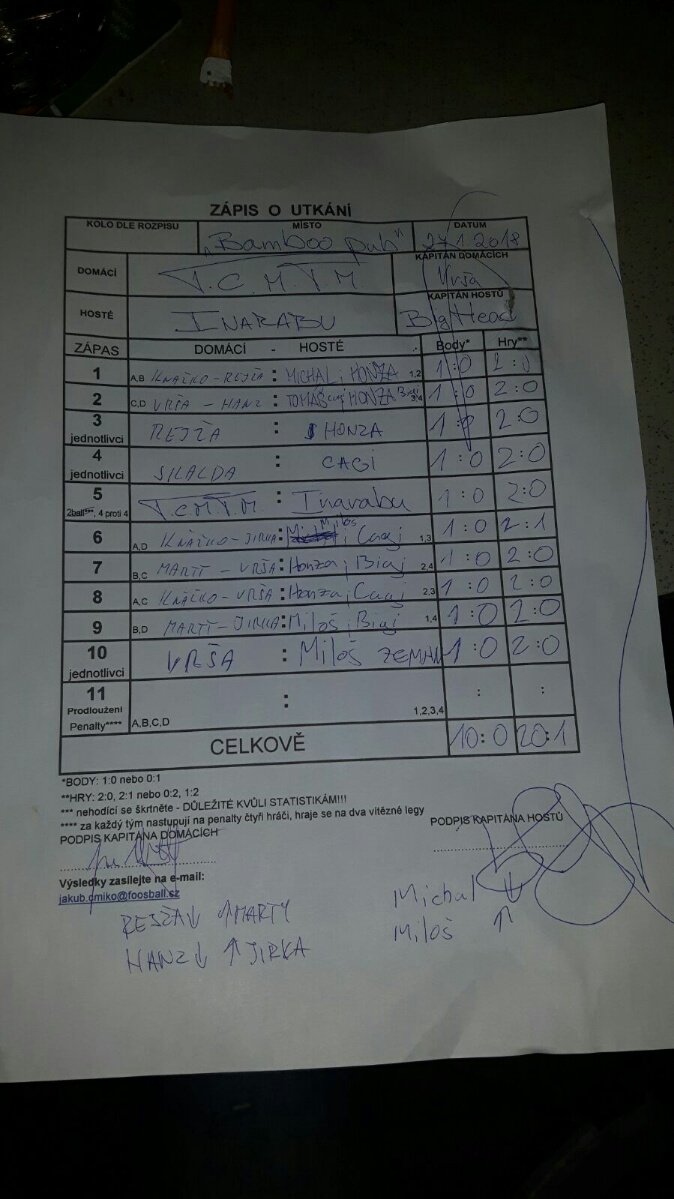 ZÁPIS O UTKÁNÍ
KOLO DLE ROZPISU MÍSTO DATUM
„Bamboo pub" 27.1 2018
DOMÁCÍ T.C.M.T.M KAPITÁN DOMÁCÍCH Vrša
HOSTÉ INARABU KAPITÁN HOSTŮ BigHead
ZÁPAS DOMÁCÍ - HOSTÉ Body* Hry**
1 A,B KNAČKO-REJŽA : MICHAL; HONZA 1,2 1:0 2:0
2 C,D VRŠA - HANZ : TOMÁŠ HONZA 3,4 1:0 2:0
3 jednotlivci REJŽA : HONZA 1:0 2:0
4 jednotlivci SKALDA : CAGI 1:0 2:0
5 2ball***, 4 proti 4 T.CMTM : Inarabu 1:0 2:0
6 A,D KNAČKO-JIRKA : Miloš, Cagi 1,3 1:0 2:1
7 B,C MARTY - VRŠA : Honza; Bigi 2,4 1:0 2:0
8 A,C KNAČKO - VRŠA : Honza; Cagi 2,3 1:0 2:0
9 B,D MARTY-JIRKA : Miloš, Bigi 1,4 1:0 2:0
10 jednotlivci VRŠA : Miloš ZEMAN 1:0 2:0
11 Prodloužení Penalty**** A,B,C,D : 1,2,3,4 : :
CELKOVĚ 10:0 20:1
*BODY: 1:0 nebo 0:1
**HRY: 2:0, 2:1 nebo 0:2, 1:2
*** nehodící se škrtněte - DŮLEŽITÉ KVŮLI STATISTIKÁM!!!
**** za každý tým nastupují na penalty čtyři hráči, hraje se na dva vítězné legy
PODPIS KAPITÁNA DOMÁCÍCH PODPIS KAPITÁNA HOSTŮ
Výsledky zasílejte na e-mail:
jakub.cmiko@foosball.cz
REJŽA↓ ↑MARTY Michal ↓
HANZ↓ ↑JIRKA Miloš ↑